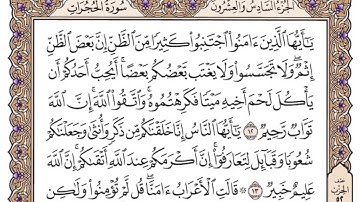 الجزء السادس والعشرون سورة الحجرات
يَٰٓأَيُّهَا ٱلَّذِينَ ءَامَنُوا۟ ٱجْتَنِبُوا۟ كَثِيرًا مِّنَ ٱلظَّنِّ إِنَّ بَعْضَ ٱلظَّنِّ
إِثْمٌ ۖ وَلَا تَجَسَّسُوا۟ وَلَا يَغْتَب بَّعْضُكُم بَعْضًا ۚ أَيُحِبُّ أَحَدُكُمْ أَن
يَأْكُلَ لَحْمَ أَخِيهِ مَيْتًا فَكَرِهْتُمُوهُ ۚ وَٱتَّقُوا۟ ٱللَّهَ ۚ إِنَّ ٱللَّهَ
تَوَّابٌ رَّحِيمٌ ١٢ يَٰٓأَيُّهَا ٱلنَّاسُ إِنَّا خَلَقْنَٰكُم مِّن ذَكَرٍ وَأُنثَىٰ وَجَعَلْنَٰكُمْ
شُعُوبًا وَقَبَآئِلَ لِتَعَارَفُوٓا۟ ۚ إِنَّ أَكْرَمَكُمْ عِندَ ٱللَّهِ أَتْقَىٰكُمْ ۚ إِنَّ ٱللَّهَ
عَلِيمٌ خَبِيرٌ ١٣ قَالَتِ ٱلْأَعْرَابُ ءَامَنَّا ۖ قُل لَّمْ تُؤْمِنُوا۟ وَلَٰكِن
نصف
الحزب
٥٢